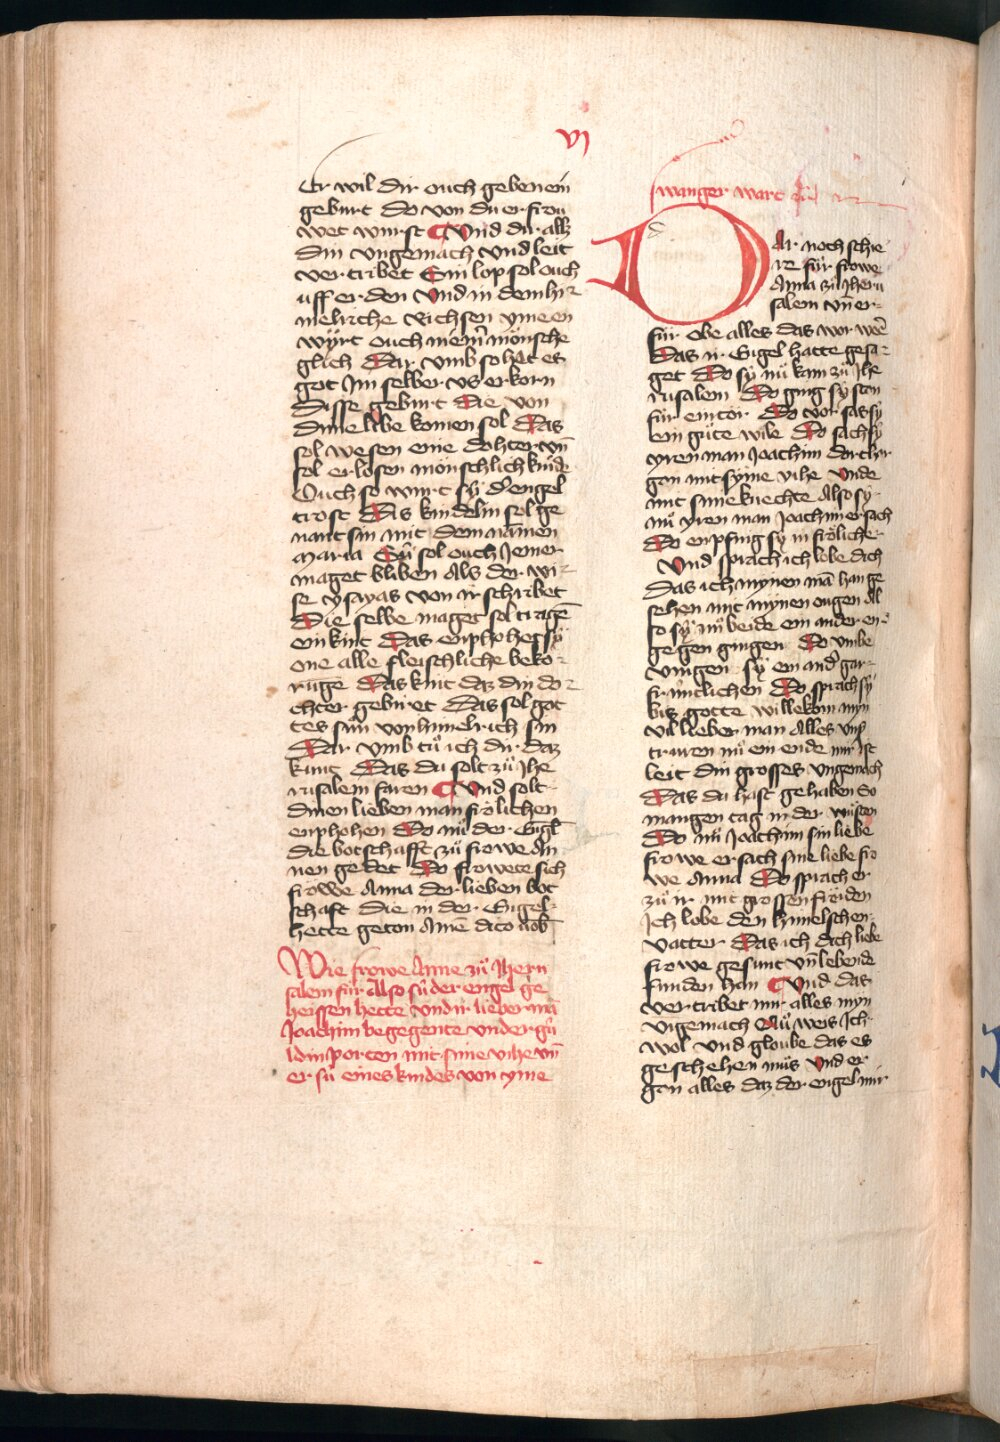 vj
Er wil dir ouch geben ein
geburt do von du er frou
wet wurst Und dir allz
din ungemach und leit
ver tribet Sin lop sol ouch
uff er den Und in dem hi
melriche Richsen yme en
wyrt ouch niem̄ mönsche
glich Dar umb so het es
got Im selber us er korn
Disse geburt Die von
dime libe komen sol Das
sol wesen eine dohter vn̄
sol erlosen mönschlich künde
Ouch so wurt sy d' engel
trost Dis kindelin sol ge
nant sin mit dem nāmen
maria Sü sol ouch Jemer
maget bliben Als der wi
se ysayas von ir schribet
Die selbe maget sol tragē
ein kint Das enphohes sy
one alle fleischliche beko
runge Das kint daz din do
chter gebiret Das sol got
tes sun von himelrich sin
Dar umb tů ich dir daz
kunt Das du solt zů Jhe
rusalem faren Und solt
dinen lieben man frölichen
enphohen Do nů der Engl̄
die botschafft zů frowe An
nen gedet Do frowete sich
fröwe Anna der lieben bot
schaft die ir der Engel
hette geton Amē dico nob̄
Wie frowe Anne zů Jheru
salem für Also sü der engel ge
heissen hette Und ir lieber mā
Joachim begegente under gů
ldin porten mit sine vihe vn̄
er sü eines kindes von yme
swanger wart
Dar noch schie
re für frowe
Anna zů Jheru
salem vn̄ er
für obe alles das wor wer̄
Das ir Engel hatte gesa
get Do sy nů kam zů Jhe
rusalem Do ging sy ston
für ein tör Do vor sas sy
ein güte wile Do sach sy
yren man Joachim dort har
gon mit syme vihe Unde
mit sinne knechte Also sy
nů yren man Joachim ersach
Do enpfing sy in frölicher
Und sprach ich lobe dich
Das ich mynen mā han ge
sehen mit mynen ougen Al
so sy nů beide ein ander en
gegen gingen Do umbe
vingen sy ein and' gar
fruntlichen Do sprach sy
bis gotte willekom myn
vil lieber man Alles unser
truren nů ein ende mir ist
leit din grosses ungemach
Das du hast gehaben So
mangen tag in der wüsten
Do nů Joachim sin liebe
frowe er sach sine liebe fro
we Anna Do sprach er
zů ir mit grossen fröiden
Ich lobe den himelschen
vatter Das ich dich liebe
frowe gesunt vn̄ lebende
funden han Und das
vertribet mir alles myn
ungemach Nů weis Ich
wol Und gloube das es
geschehen müs Und er
gon alles daz der engel mir